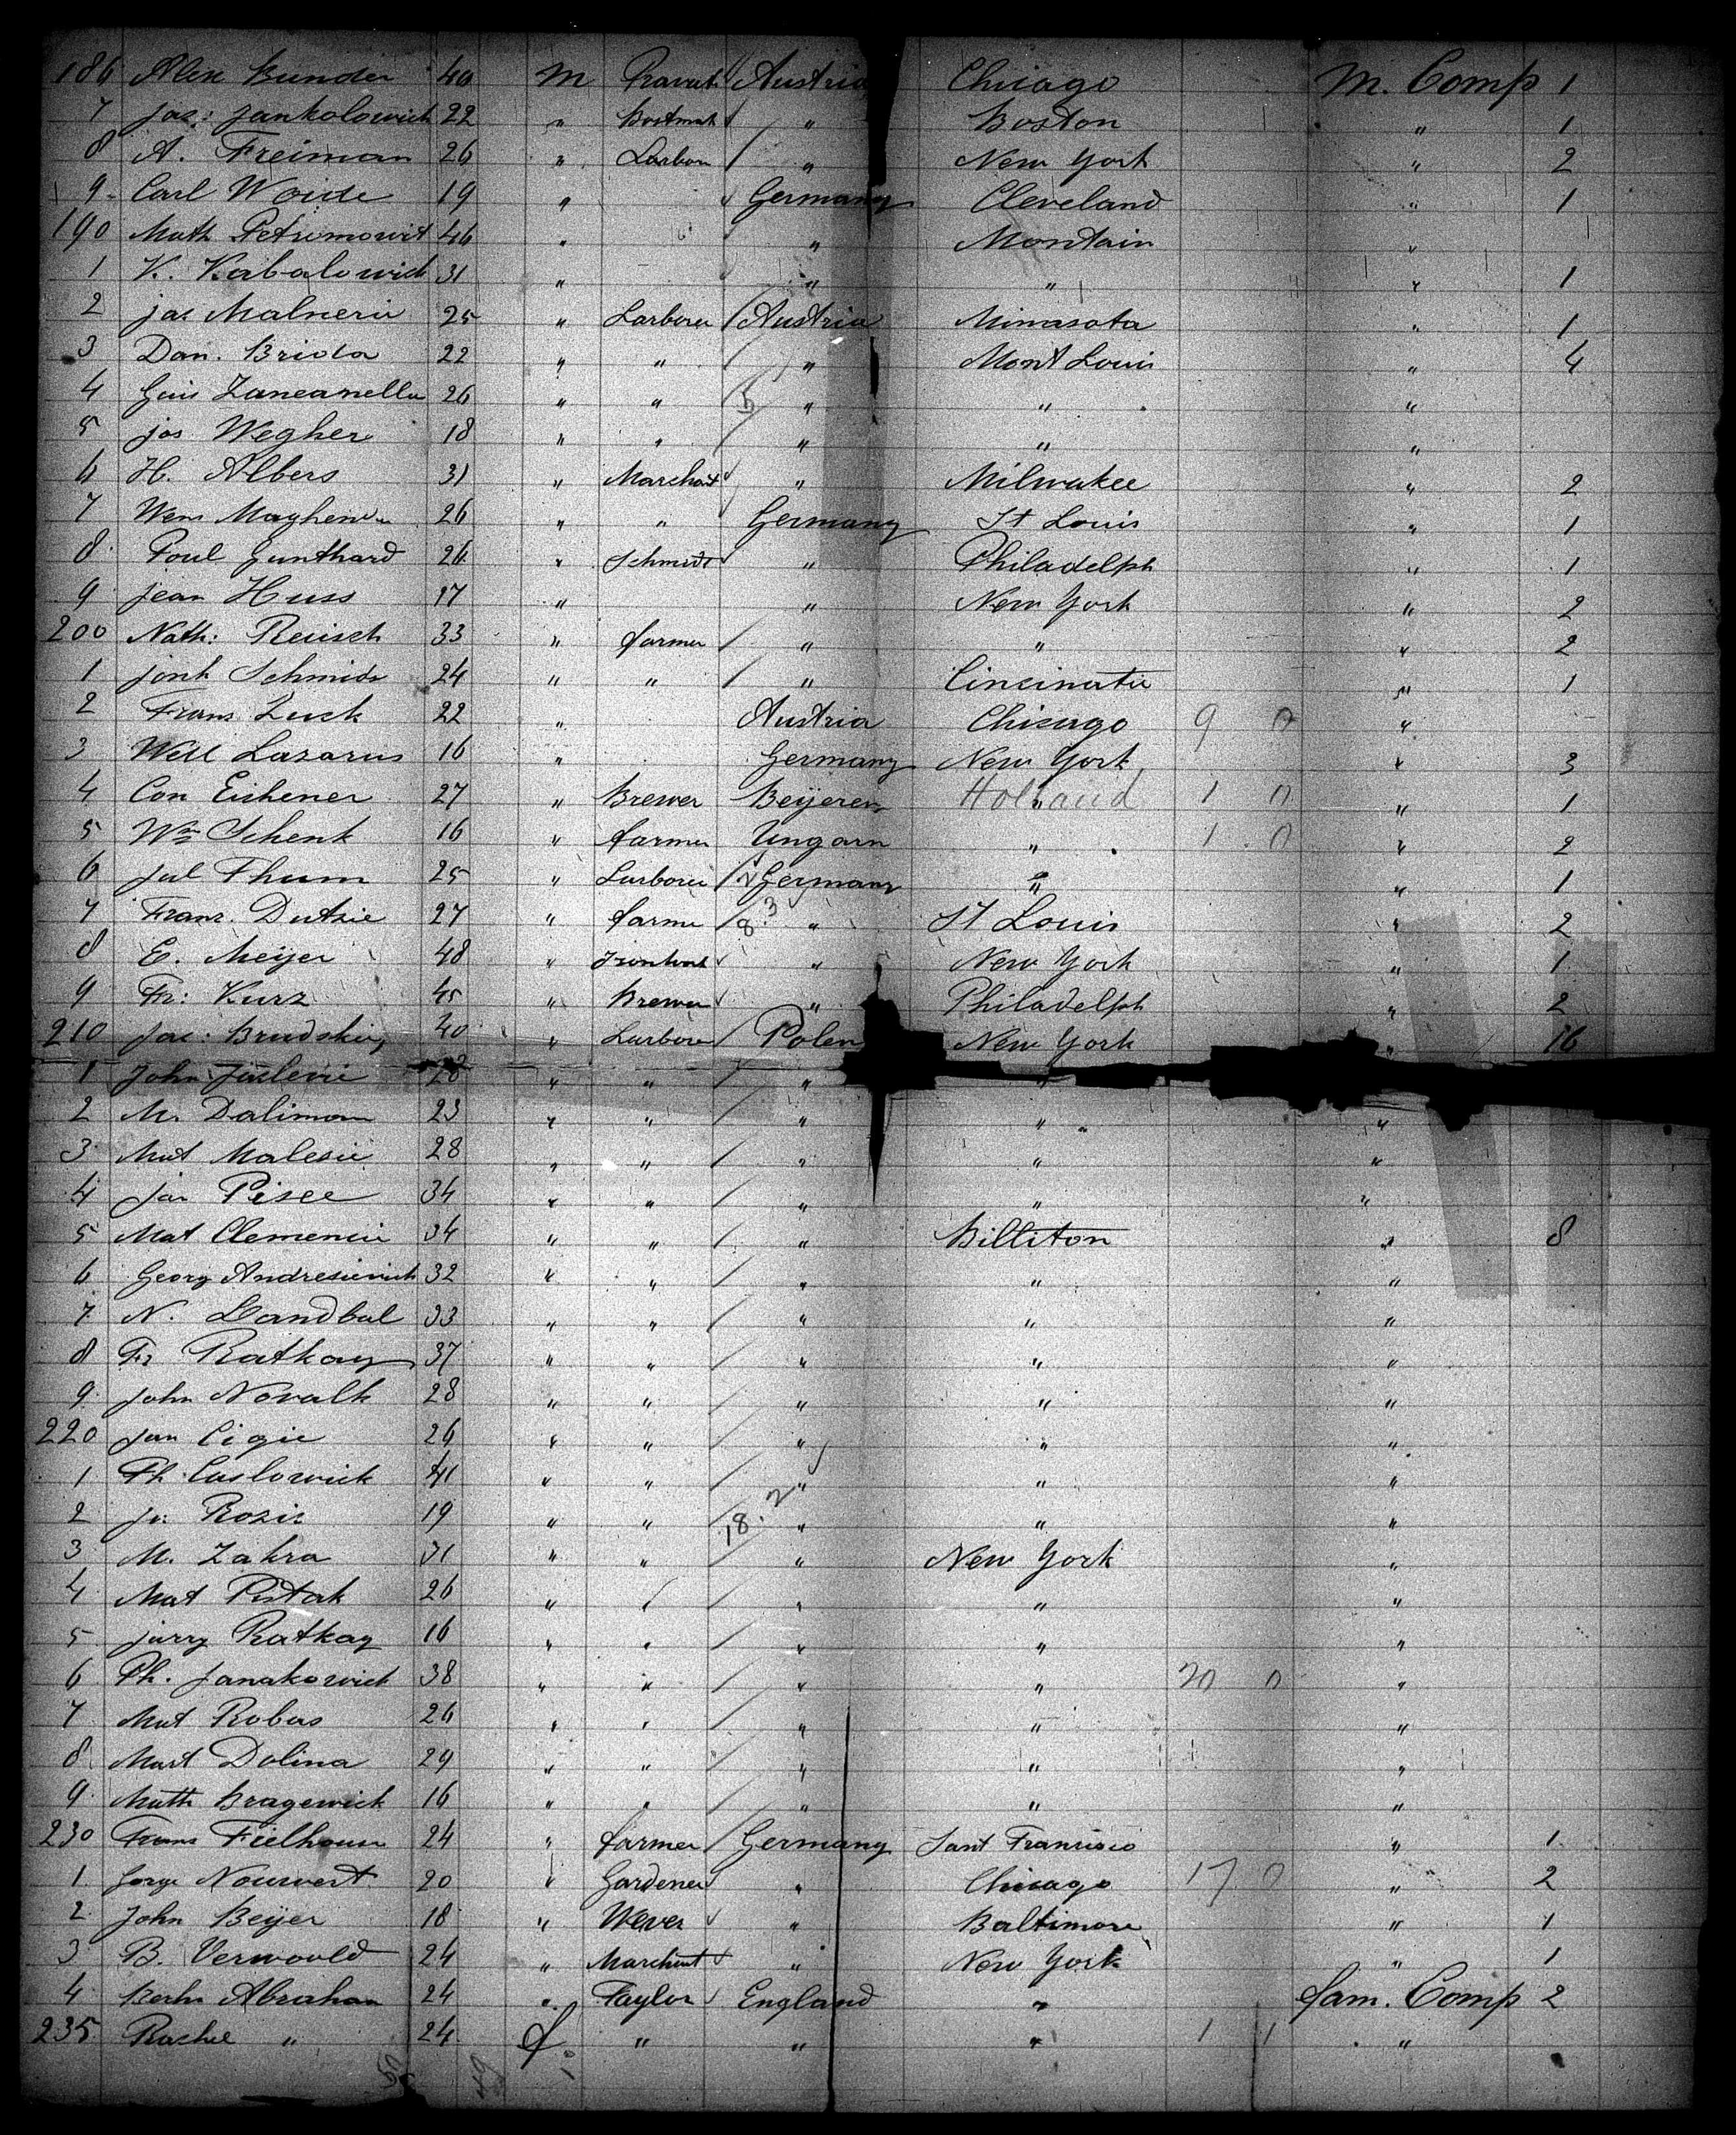 186 Alex Bunder 40 M Pravat Austria Chicago M. Comp 1
7 Jas: Jankolowich 22 " Bostmak " Boston " 1
8 A. Freiman 26 " Larbor " New York " 2
9 Carl Woide 19 " Germany Cleveland " 1
190 Math Petrimowit 46 " " Montain "
1 K. Kabalowich 31 " " " " 1
2 Jas Malneric 25 " Larborer Austria Minasota " 1
3 Dan. Brida 22 " " " Mont Louis " 4
4 Guis Zaneanella 26 " " " " "
5 Jos Wegher 18 " " " " "
6 H. Albers 31 " Marchant " Milwakee " 2
7 Wem 26 " " Germany St Louis " 1
8 Poul Gunthard 26 " Schmidt " Philadelph " 1
9 Jean Huss 17 " " New York " 2
200 Nath: Reisch 33 " farmer " " " 2
1 Jonh Schmids 24 " " " Cincinatie " 1
2 Frans Luck 22 " Austria Chicago 9 0 "
3 Will Lazarus 16 " Germany New York " 3
4 Con Eishener 27 " Brewer Beijeren Holland 1 0 " 1
5 Wm Schenk 16 " farmer Ungarn " 1 0 " 2
6 Jul Thum 25 " Larborer 2 Germany " " 1
7 Franz. Dutzie 27 " farme 8.3 " St Louis " 2
8 E. Meijer 48 " " New York " 1
9 Fr: Kurz 45 " Brewer " Philadelph " 2
210 Jac: Brudskij 40 " Larborer Polen New York " 16
1 John Juslevic 28 " " " "
2 M. Daliman 23 " " " " "
3 Mat Malesic 28 " " " " "
4 Jan Pisee 34 " " " " "
5 Mat Clemencic 34 " " " Billiton " 8
6 Georg Andresievich 32 " " " " "
7 N. Landbal 33 " " " " "
8 Fr Ratkay 37 " " " " "
9 John Novalk 28 " " " " "
220 Jan Cigie 26 " " " " "
1 Ph Caslowick 41 " " " " "
2 Jo: Rozic 19 " " 18.2 " " "
3 M. Zakra 31 " " " New York "
4 Mat Pistak 26 " " " " "
5 Jurry Ratkay 16 " " " " "
6 Ph. Janakowich 38 " " " " 20 0 "
7 Mat Robas 26 " " " " "
8 Mart Dolina 29 " " " " "
9 Math Bragewick 16 " " " " "
230 Frans Fielhouse 24 " farmer Germany Sant Francisco " 1
1 Jorge Nourvert 20 " Gardener " Chicago 17 0 " 2
2 John Beijer 18 " Wever " Baltimore " 1
3 B. Verwoold 24 " Marchant " New York " 1
4 Berhr Abraham 24 " Taylor England " fam. Comp 2
235 Rachel " 24 f. " " " 1 1 "
50 49 1